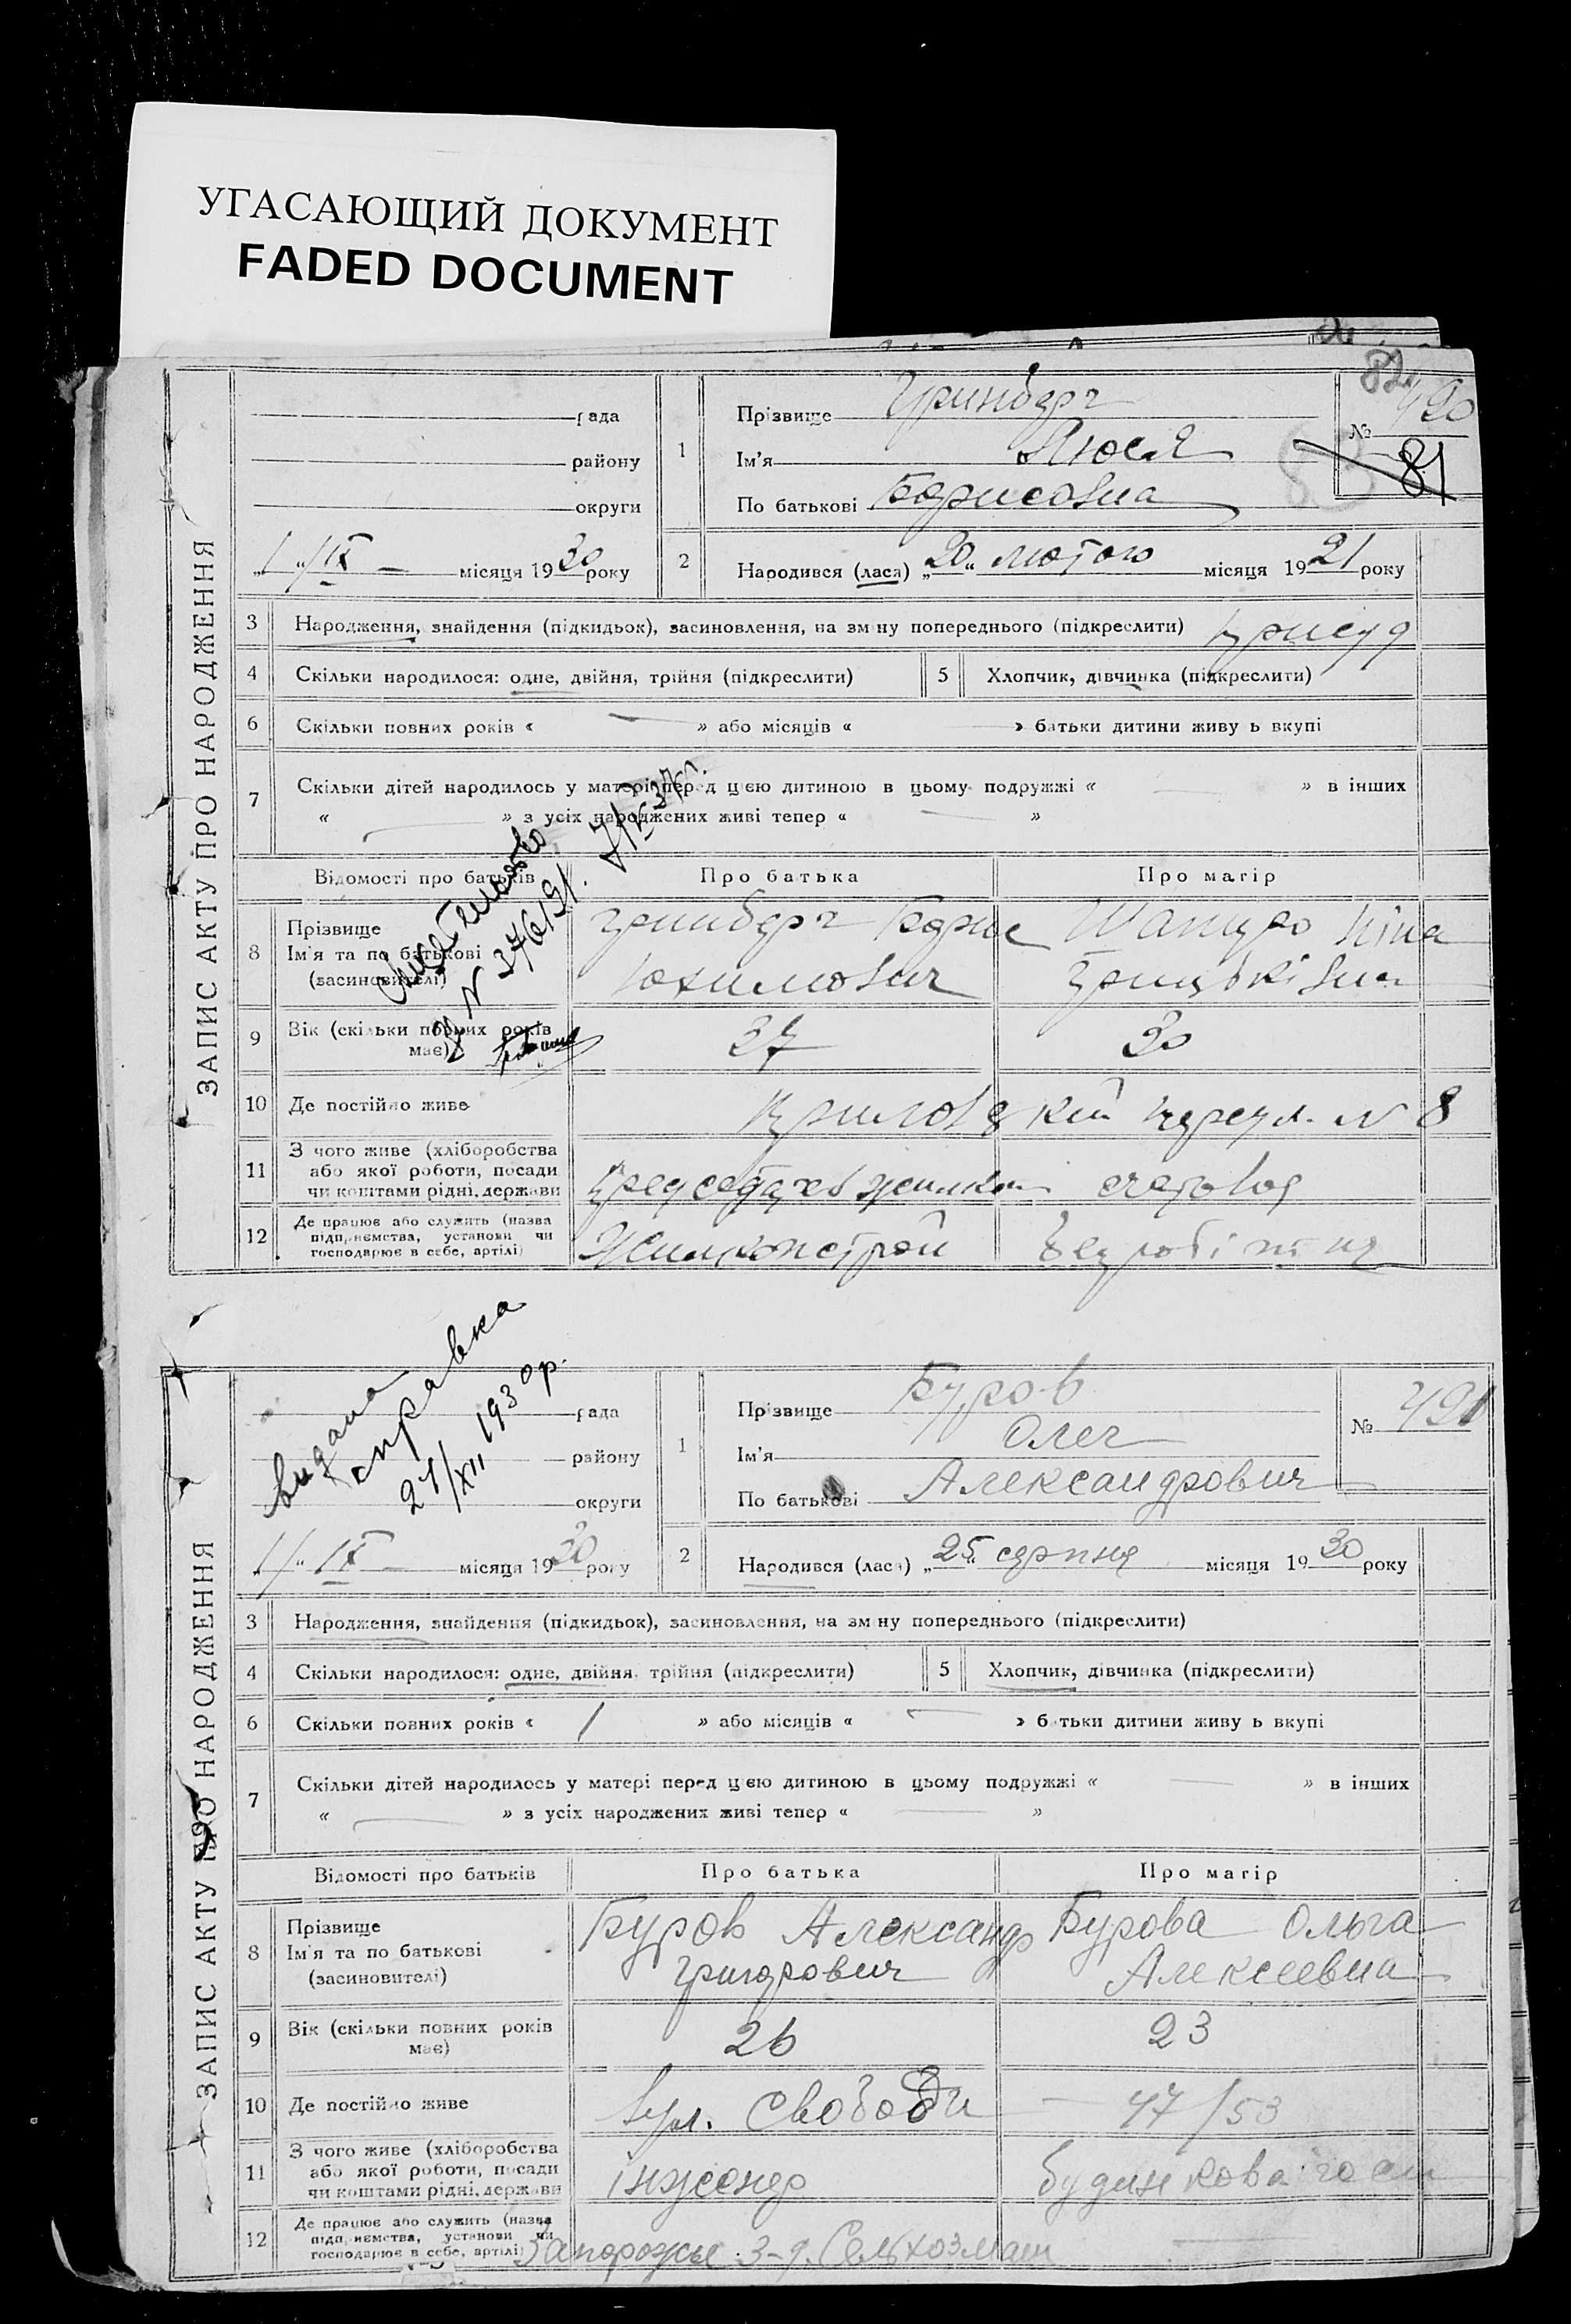 УГАСАЮЩИЙ ДОКУМЕНТ
FADED DOCUMENT
ЗАПИС АКТУ ПРО НАРОДЖЕННЯ
рада
району
округи
„1“ IX місяця 1930 року
1
Прізвище Гринберг
Ім'я Люся
По батькові Борисовна
82
№ 490
81
2 Народився (лася) „20“ лютого місяця 1921 року
3 Народження, знайдення (підкидьок), засиновлення, на зміну попереднього (підкреслити) присуд
4 Скільки народилося: одне, двійня, трійня (підкреслити) 5 Хлопчик, дівчинка (підкреслити)
6 Скільки повних років « — » або місяців « » батьки дитини живуть вкупі
7 Скільки дітей народилось у матері перед цією дитиною в цьому подружжі « — » в інших
« — » з усіх народжених живі тепер « — »
Відомості про батьків Про батька Про матір
8 Прізвище Ім'я та по батькові (засновителі)
Гринберг Борис Шапиро Ніна
Юхимович
9 Вік (скільки повних років має) 37 30
10 Де постійно живе № 8
11 З чого живе (хліборобства або якої роботи, посади чи коштами рідні, держави счетовод
12 Де працює або служить (назва підприємства, установи чи господарює в себе, артілі)
№ 376191.
видана
справка
21/XII 1930р.
ЗАПИС АКТУ ПРО НАРОДЖЕННЯ
рада
району
округи
„1“ IX — місяця 1930 року
1
Прізвище Буров
Ім'я Олег
По батькові Александрович
№ 491
2 Народився (лася) „25“ серпня місяця 1930 року
3 Народження, знайдення (підкидьок), засиновлення, на зміну попереднього (підкреслити)
4 Скільки народилося: одне, двійня, трійня (підкреслити) 5 Хлопчик, дівчинка (підкреслити)
6 Скільки повних років « 1 » або місяців « — » батьки дитини живуть вкупі
7 Скільки дітей народилось у матері перед цією дитиною в цьому подружжі « — » в інших
« — » з усіх народжених живі тепер « — »
Відомості про батьків Про батька Про матір
8 Прізвище Ім'я та по батькові (засиновителі)
Буров Александр Бурова Ольга
Григорович Алексеевна
9 Вік (скільки повних років має) 26 23
10 Де постійно живе вул. Свободи — 47/53
11 З чого живе (хліборобства або якої роботи, посади чи коштами рідні, держави інженер
12 Де працює або служить (назва підприємства, установи чи господарює в себе, артілі) Запорожье з-д. Сельхозмаш